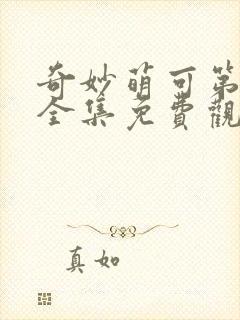 奇妙萌可第
全集免費觀
真如